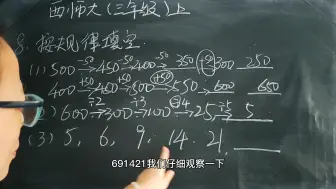 西师大(三年级)上
按规律填空.
(1) 500 -50 450 -50 400 -50 350 -50 300 250
400 +50 450 +50 500 +50 550 600 650
(2) 600 ÷2 300 ÷3 100 ÷4 25 ÷5 5
(3) 5, 6, 9, 14. 21,
691421我们仔细观察一下